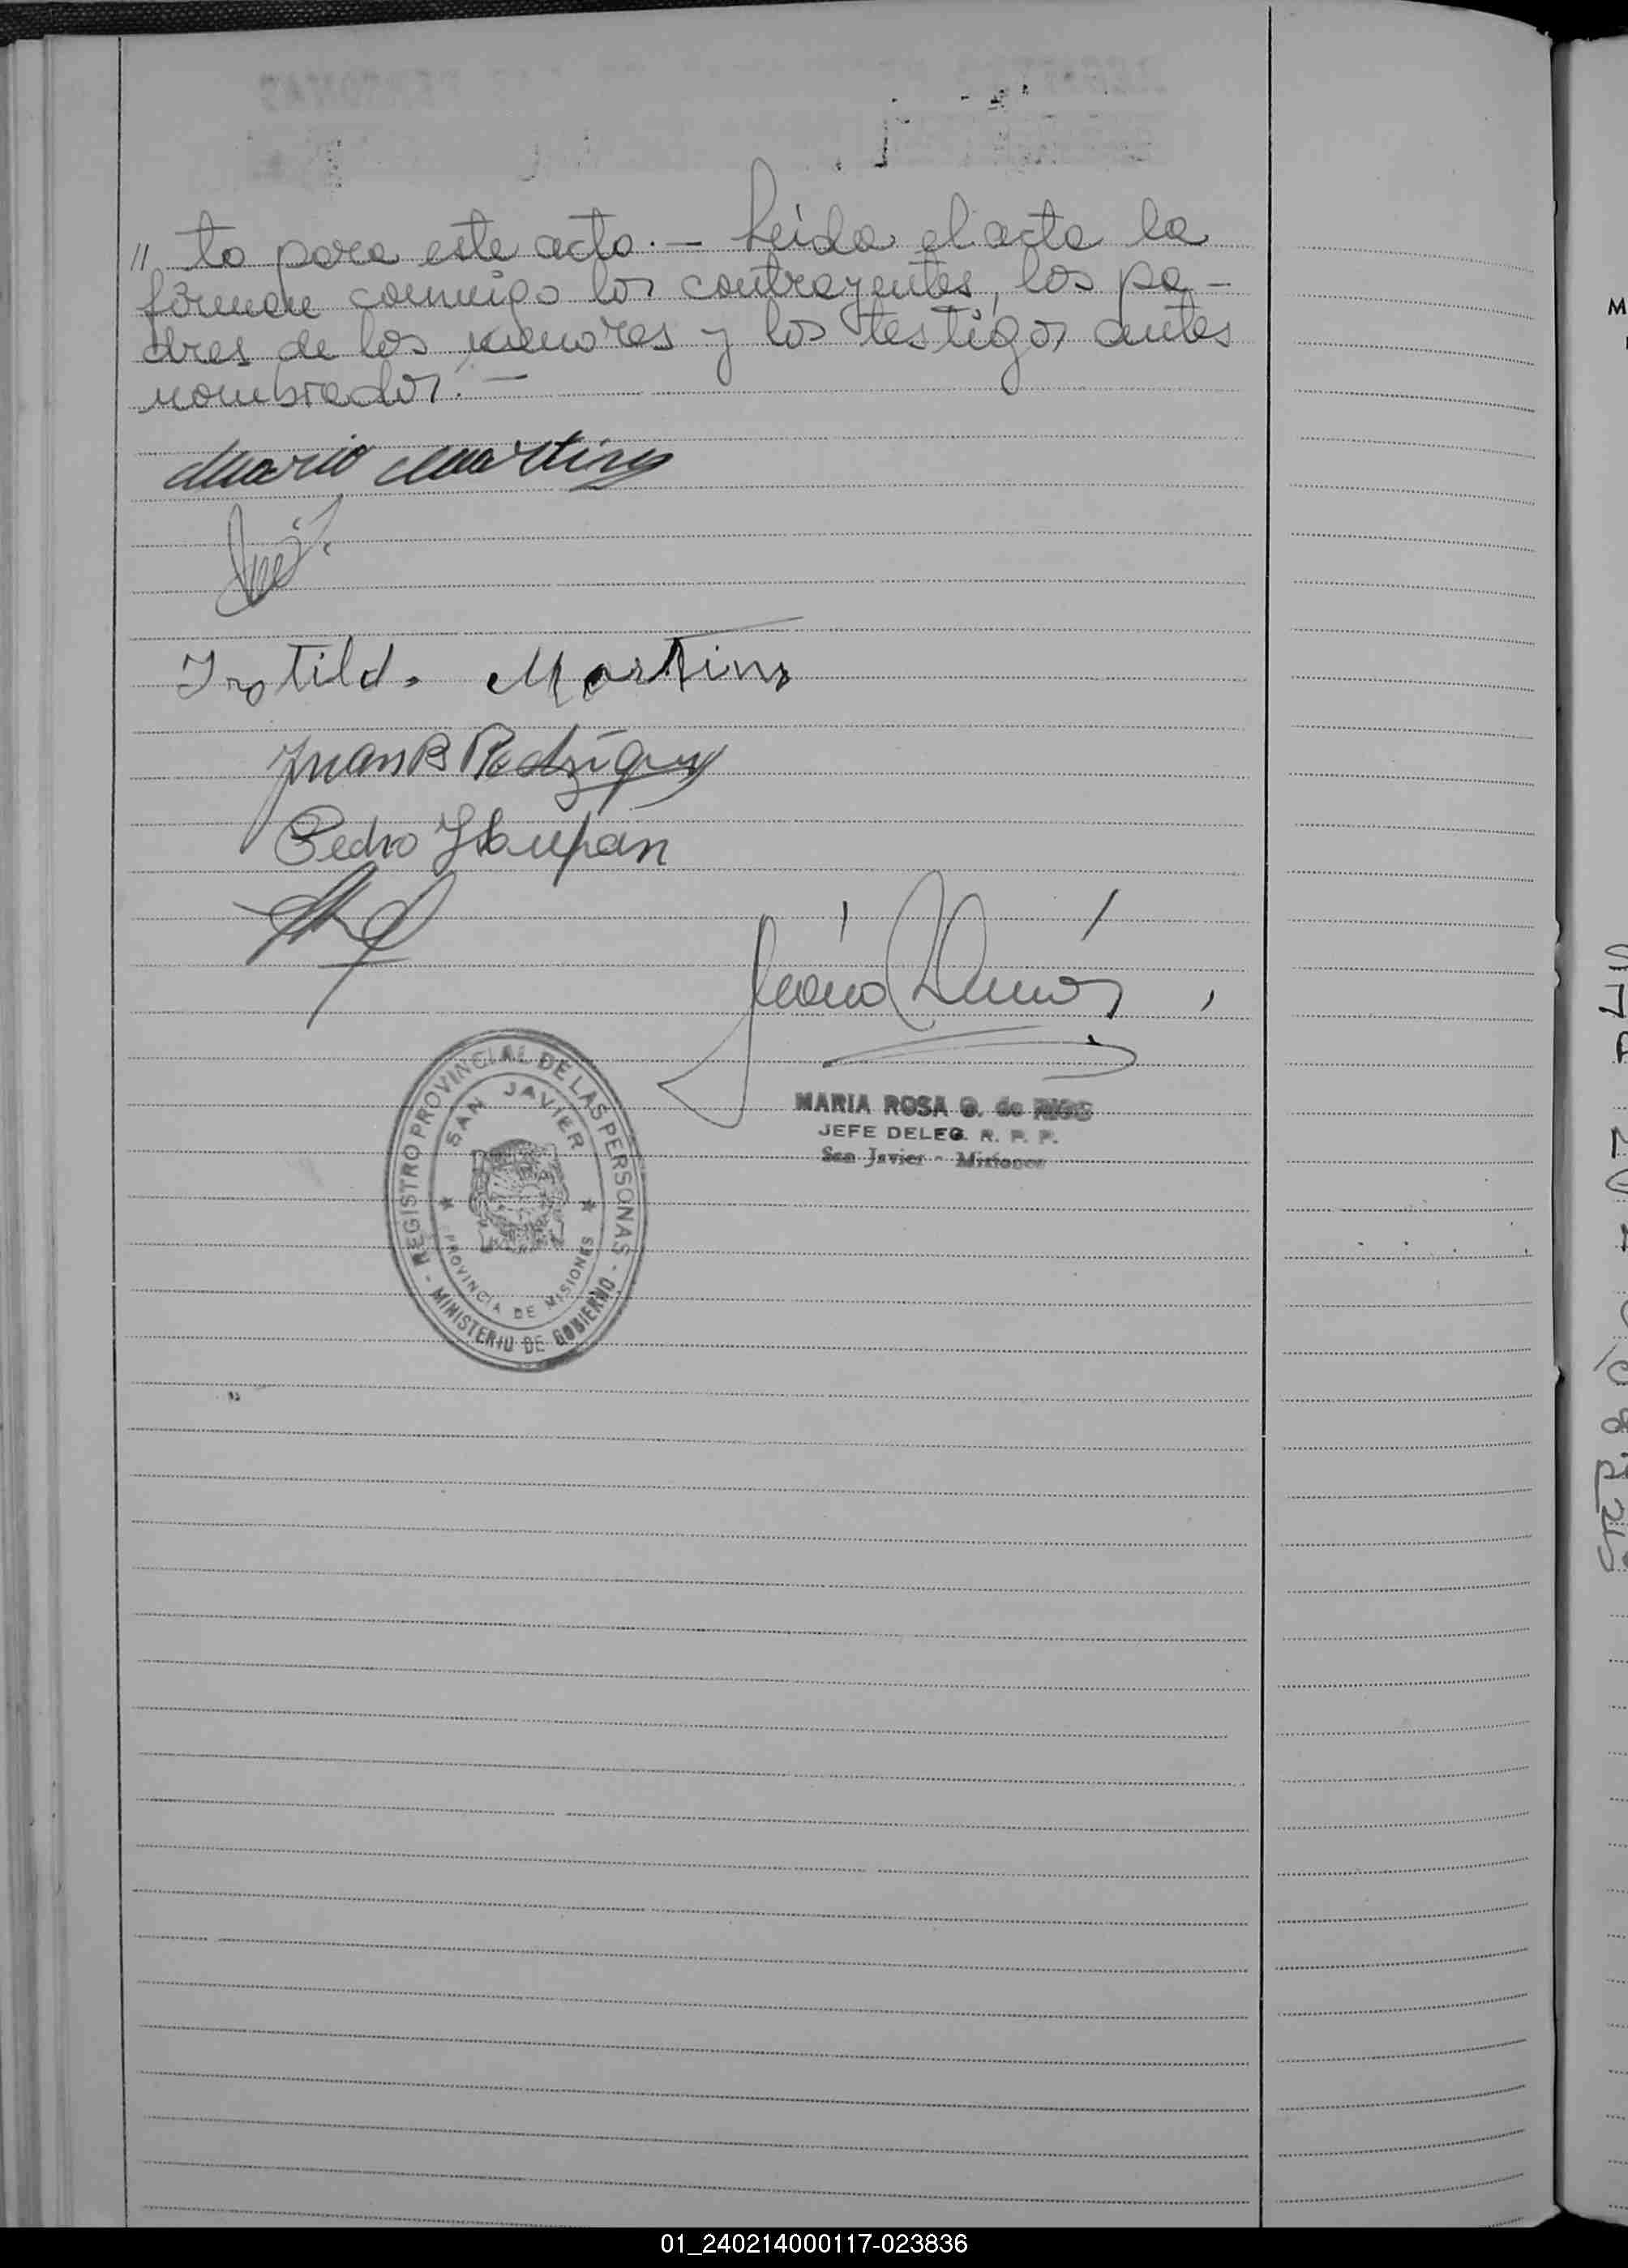 // to para este acto. — Leída el acta la
firman conmigo los contrayentes, los pa-
dres de los menores y los testigos antes
nombrados. —
Mario Martins
Martins
Juan B Rodríguez
Pedro
MARIA ROSA G. de RIOS
JEFE DELEG. R. P. P.
San Javier - Misiones
REGISTRO PROVINCIAL DE LAS PERSONAS - MINISTERIO DE GOBIERNO -
SAN JAVIER
PROVINCIA DE MISIONES
01_240214000117-023836